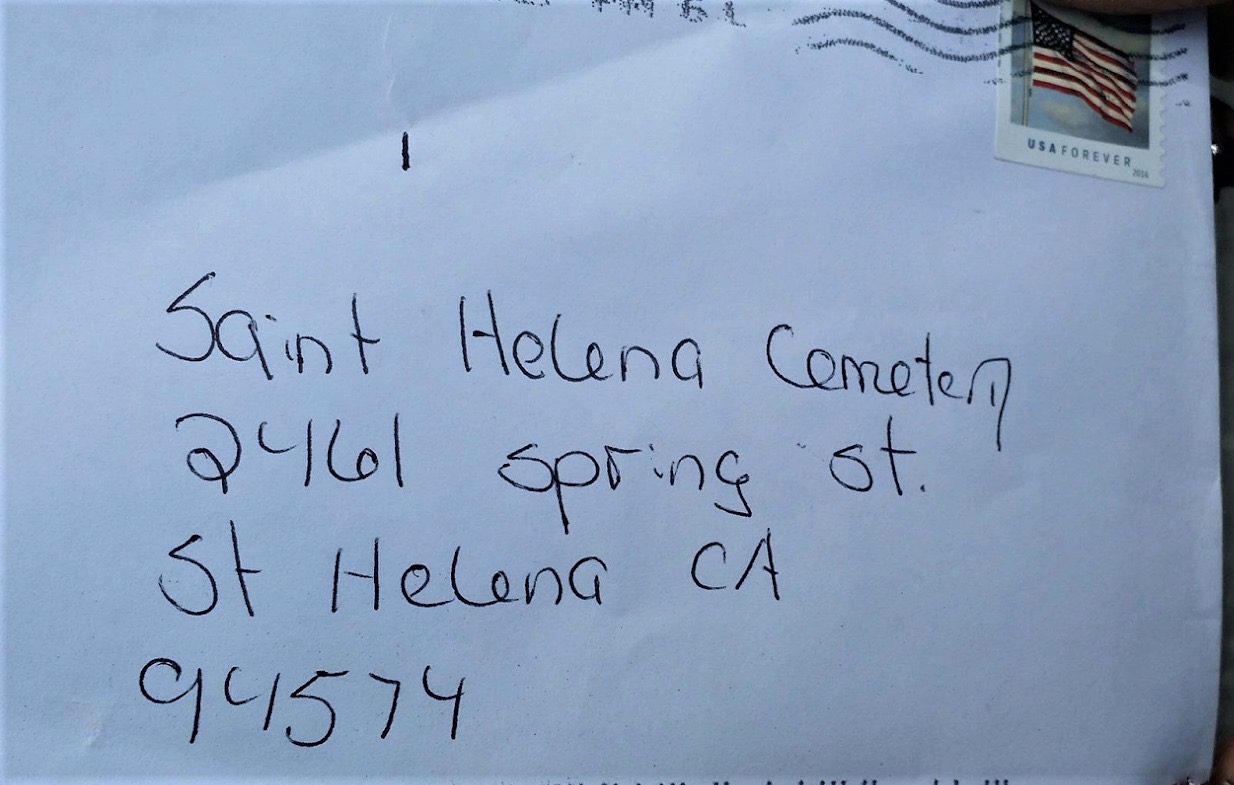 USA FOREVER
2016
Saint Helena Cemetery
2461 spring st.
St Helena CA
94574